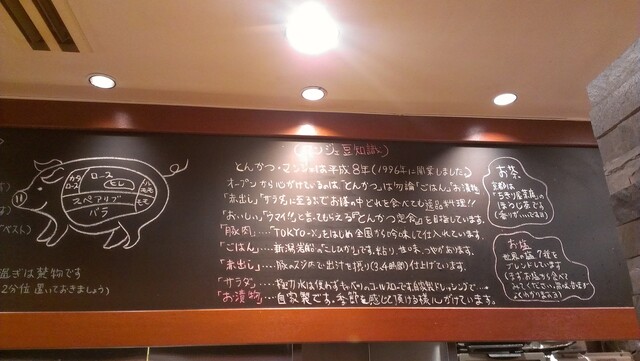 ベスト)
過ぎは禁物です
2分位 置いておきましょう)
カタ
ロース
ロース
ヒレ
スペアリブ
バラ
モモ
(マンジェ豆知識)
とんかつ・マンジェは平成8年(1996年)に開業しました。
オープンから心がけているのは、「とんかつ」は勿論「ごはん」「お漬物」
「赤出し」「サラダ」に至るまでお膳の中どれを食べても逸品料理!!
「おいしい」「ウマイ!!」と言ってもらえる『とんかつ定食』を目指しています。
「豚肉」‥‥「TOKYO-X」をはじめ全国から吟味して仕入れています。
「ごはん」‥‥新潟岩船の「こしひかり」です。粘り、甘味、つやがあります。
「赤出し」‥‥豚のスジ肉で出汁を取り(3,4時間)仕上げています。
「サラダ」‥‥
キャベツのコールスローです。自家製ドレッシングで‥
「お漬物」‥‥自家製です。季節を感じて頂ける様心がけています。
お茶
京都の
「ちきりや茶舗」の
ほうじ茶です
(香りがいいですヨ)
お塩
世界の塩7種を
ブレンドしています
(まずお塩から食べて
みてください。